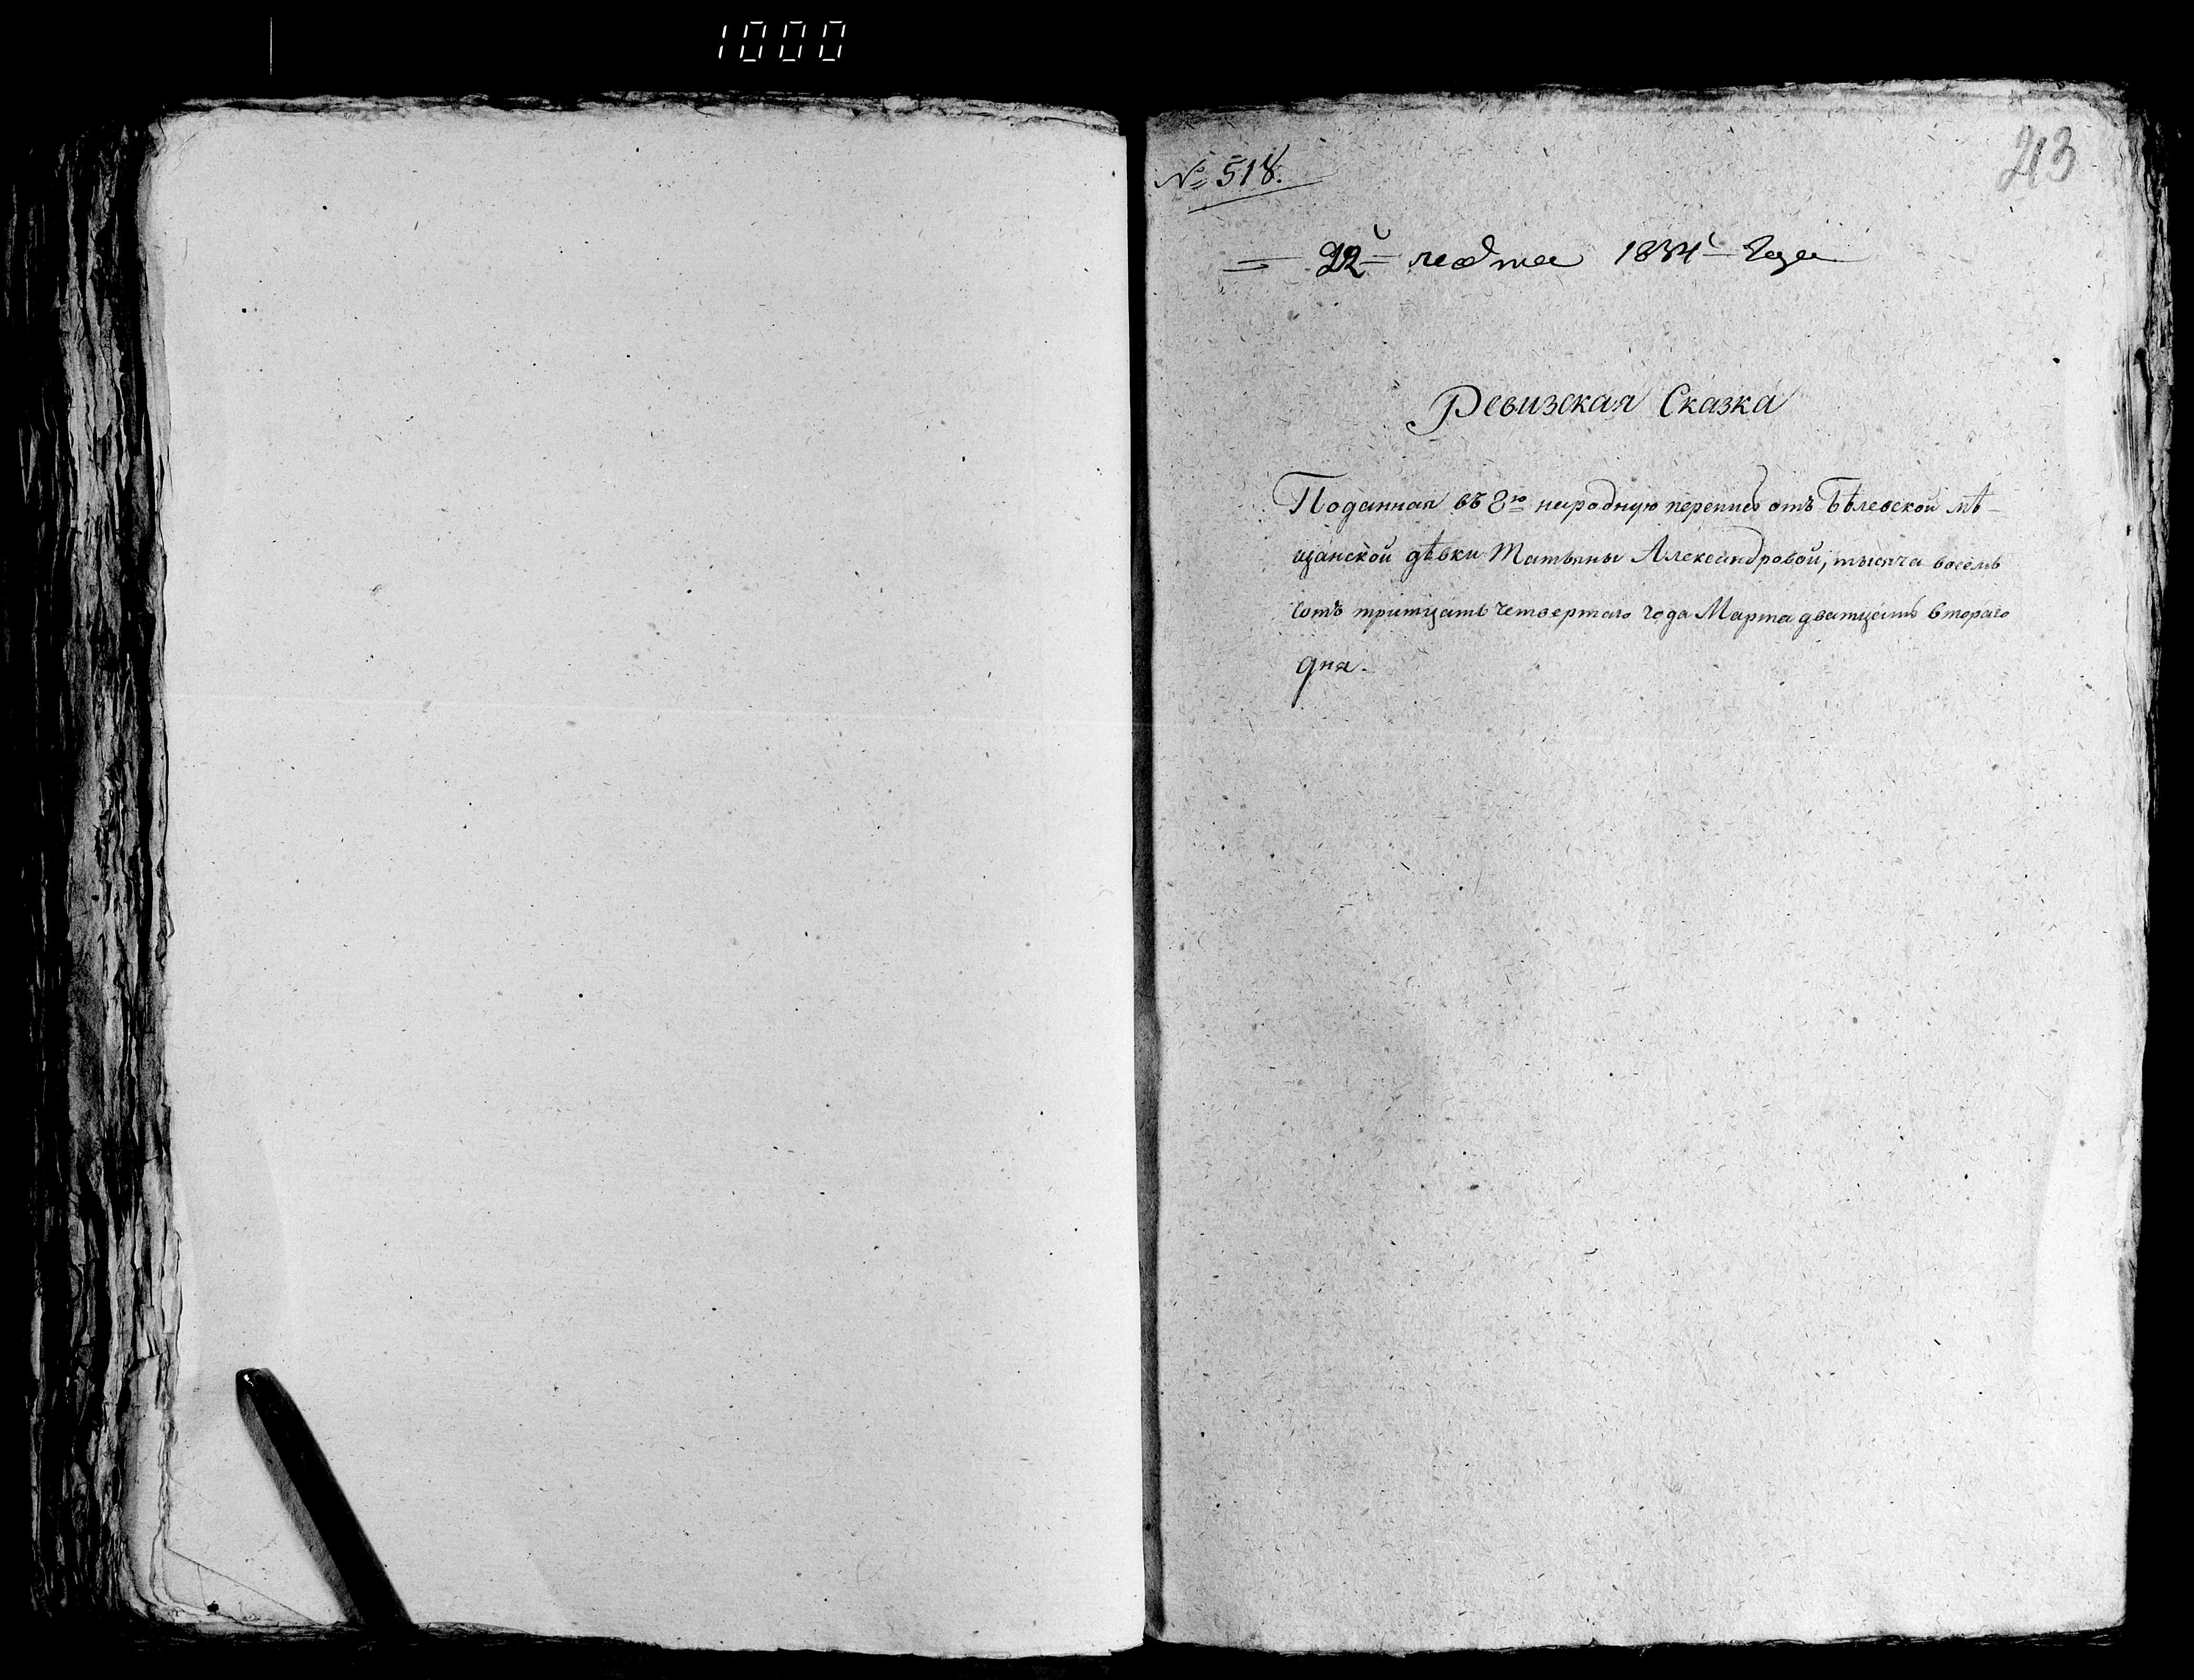 1000
213
№ 518.
22 марта 1834 года
Ревизская Сказка
Поданная въ 8ю народную перепись отъ Бѣлевской мѣ-
щанской дѣвки Татьяны Александровой, тысяча восемь
сотъ тритцать четвертаго года Марта дватцать втораго
дня.